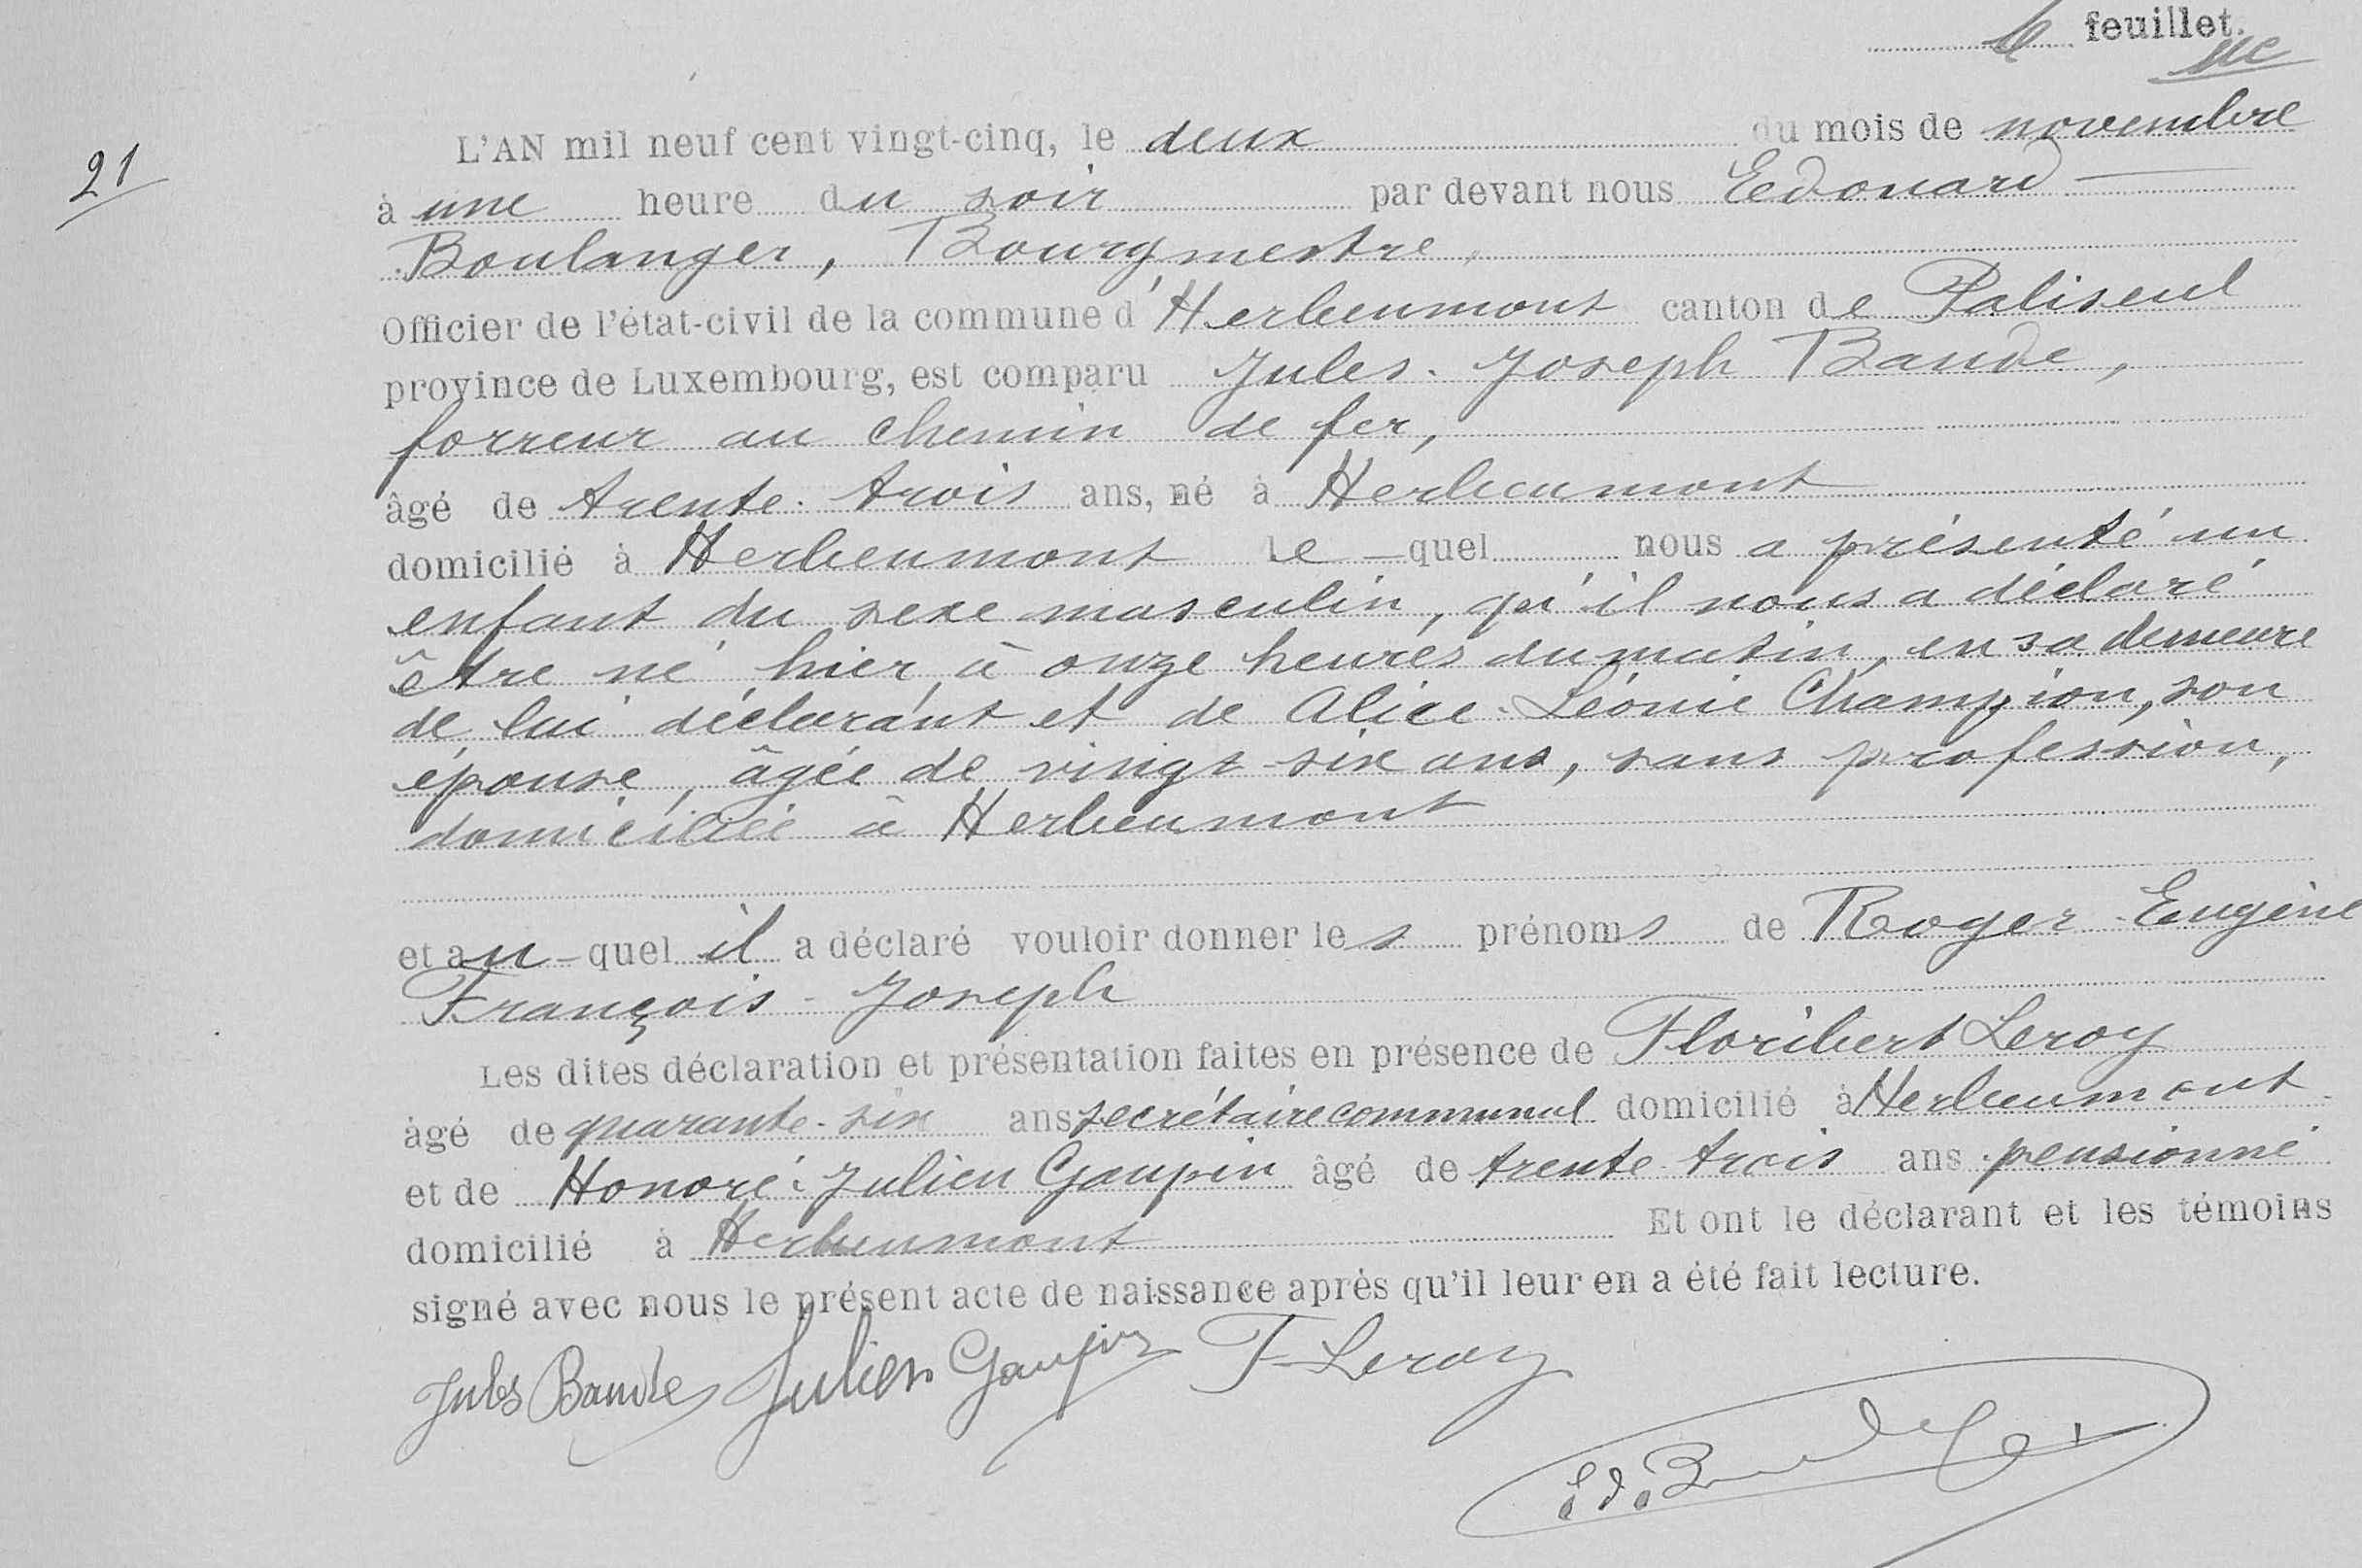 feuillet.
21
L'AN mil neuf cent vingt-cinq, le deux du mois de novembre
à une heure du soir par devant nous Edouard
Boulanger, Bourgmestre,
Officier de l'état-civil de la commune d'Herbeumont canton de Paliseul
province de Luxembourg, est comparu Jules-Joseph Baude,
forreur au chemin de fer,
âgé de trente-trois ans, né à Herbeumont
domicilié à Herbeumont le quel nous a présenté un
enfant du sexe masculin, qu'il nous a déclaré
être né hier à onze heures du matin, en sa demeure
de lui déclarant et de Alice-Léonie Champion, son
épouse, âgée de vingt-six ans, sans profession,
domiciliée à Herbeumont
et au-quel il a déclaré vouloir donner les prénoms de Roger-Eugène
François-Joseph
Les dites déclaration et présentation faites en présence de Floribert Leroy
âgé de quarante-six ans secrétaire communal domicilié à Herbeumont
et de Honoré-Julien Gaupin âgé de trente-trois ans pensionné
domicilié à Herbeumont Et ont le déclarant et les témoins
signé avec nous le présent acte de naissance après qu'il leur en a été fait lecture.
Jules Baude Julien Gaupin F Leroy